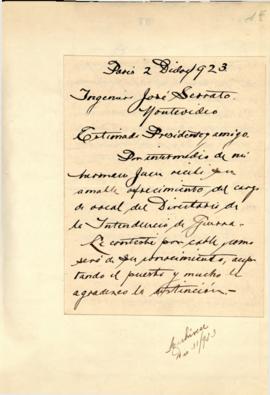 Paris 2 Dicbre 1923.
Ingeniero José Serrato.
Montevideo
Estimado Presidente y amigo.
Por intermedio de mi
hermano Juan recibí su
amable ofrecimiento del cargo
de vocal del Directorio de
la Intendencia de Guerra.
Le contesté por cable, como
será de su conocimiento, acep-
tando el puesto y mucho le
agradezco la distinción.–
Archívese